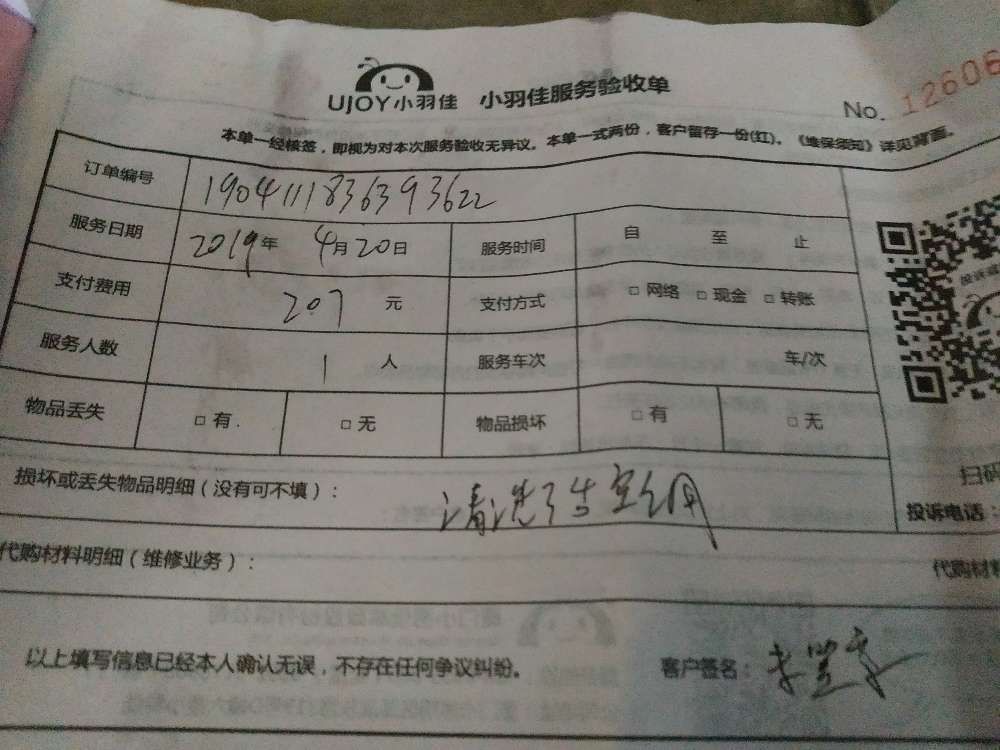 UJOY小羽佳 小羽佳服务验收单
No. 12606
本单一经核签，即视为对本次服务验收无异议。本单一式两份，客户留存一份(红)。《维保须知》详见背面。
订单编号 1904111836393622
服务日期 2019年 4月20日 服务时间 自 至 止
支付费用 207 元 支付方式 □ 网络 □ 现金 □ 转账
服务人数 1 人 服务车次 车/次
物品丢失 □ 有 □ 无 物品损坏 □ 有 □ 无
扫码
损坏或丢失物品明细（没有可不填）： 清洗
投诉电话：
代购材料明细（维修业务）： 代购材料
以上填写信息已经本人确认无误，不存在任何争议纠纷。 客户签名：